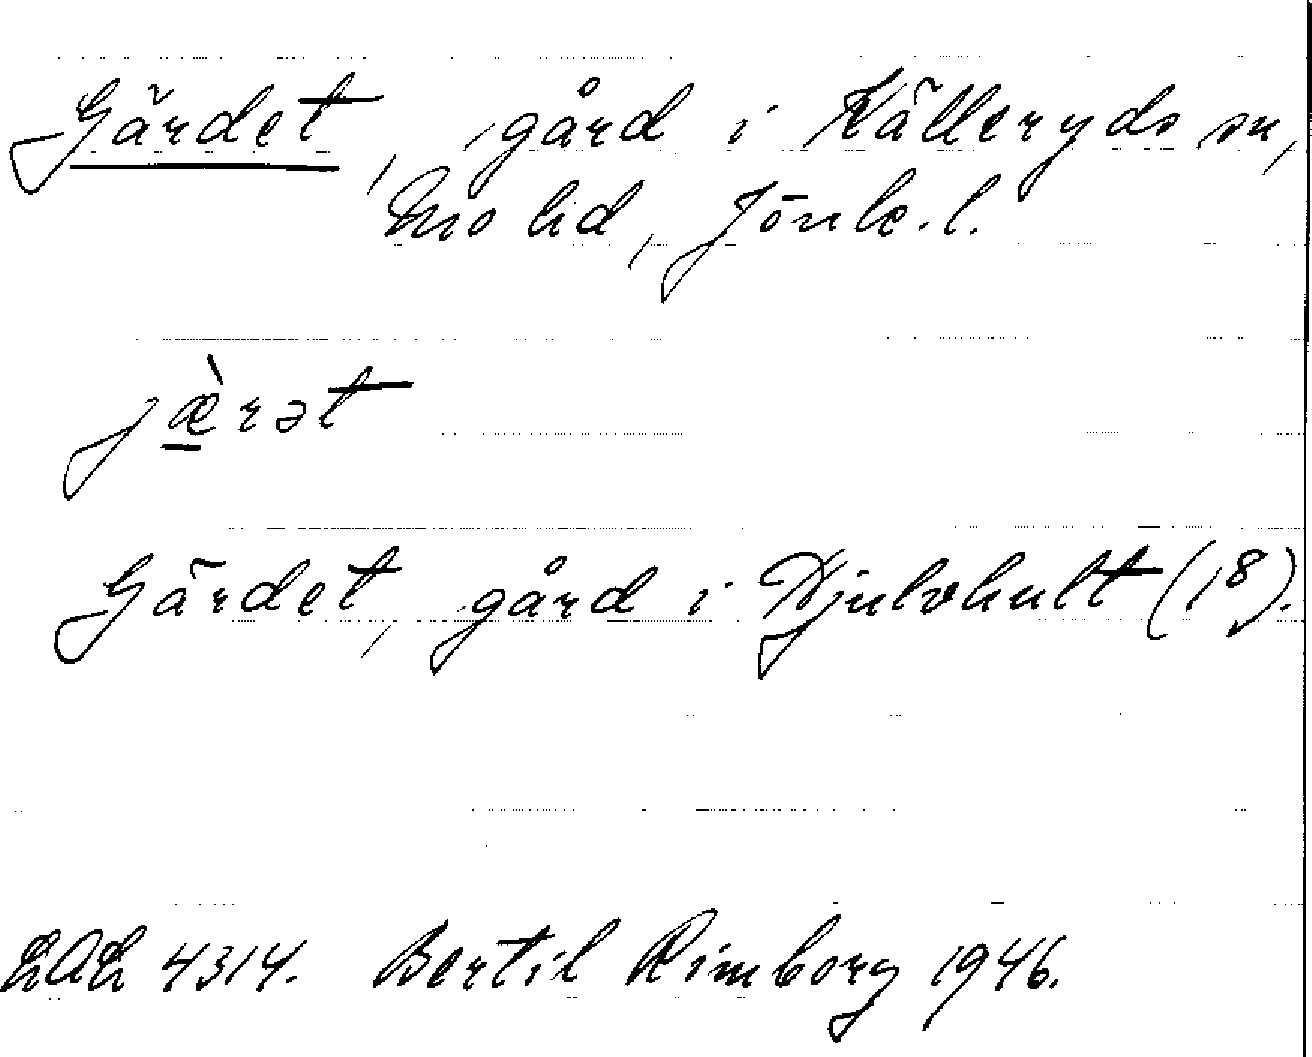 Gärdet, gård i Kålleryds sn,
Mo hd, Jönk. l.
jæ̀rət
Gärdet, gård i Djulvhult (1⁸).
LAL 4314. Bertil Rimborg 1946.